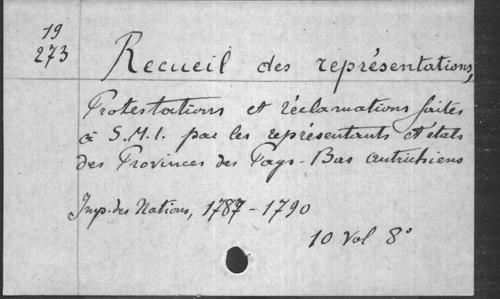 19
273
Recueil des représentations,
Protestations et réclamations faites
à S.M.I. par les représentants et états
des Provinces des Pays-Bas autrichiens
Imp. des Nations, 1787-1790
10 vol 8°